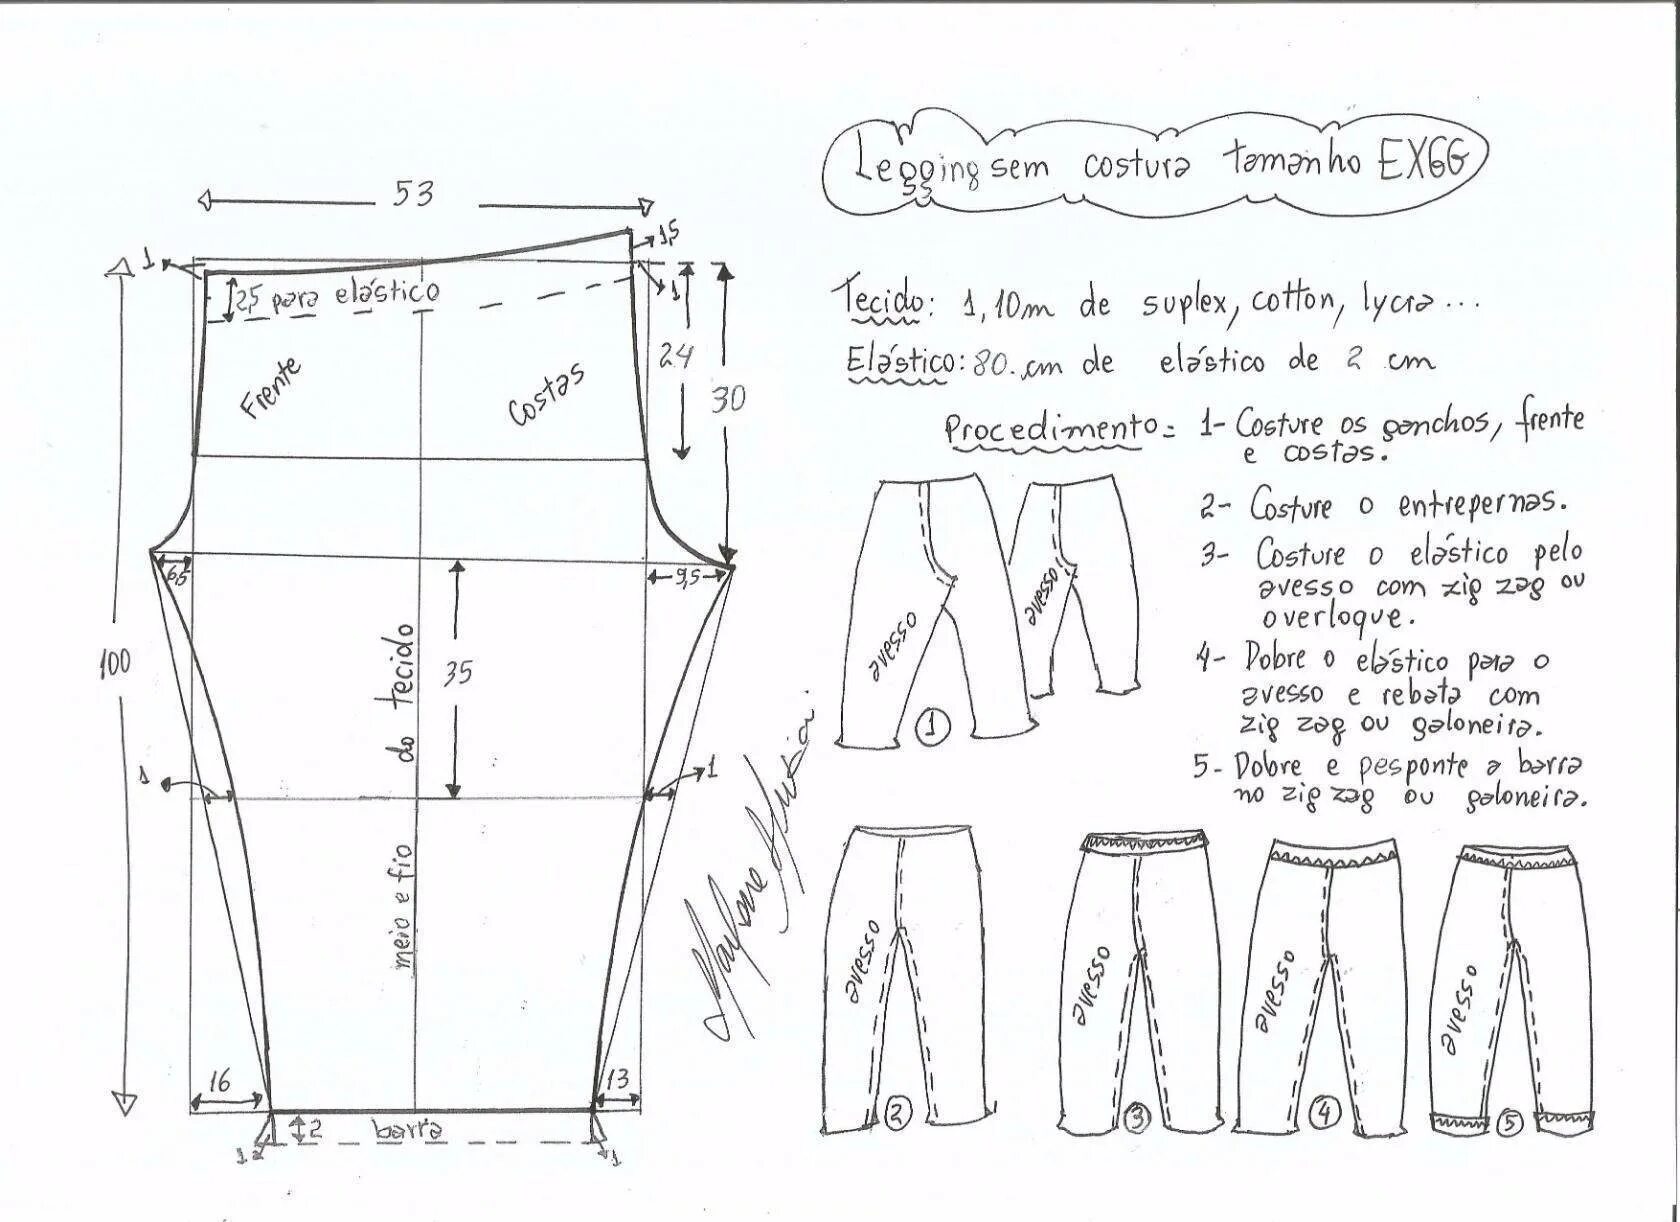 Legging sem costura tamanho EXGG
53
1
1,5
1
2,5 para elástico
Frente
Costas
24
30
Tecido: 1,10m de suplex, cotton, lycra...
Elástico: 80.cm de elástico de 2 cm
Procedimento= 1- Costure os ganchos, frente
e costas.
2- Costure o entrepernas.
3- Costure o elástico pelo
avesso com zig zag ou
overloque.
4- Dobre o elástico para o
avesso e rebata com
zig zag ou galoneira.
5- Dobre e pesponte a barra
no zig zag ou galoneira.
6,5
9,5
100
35
meio e fio do tecido
1
1
16
13
2
barra
1
1
avesso
avesso
1
avesso
2
avesso
3
avesso
4
avesso
5